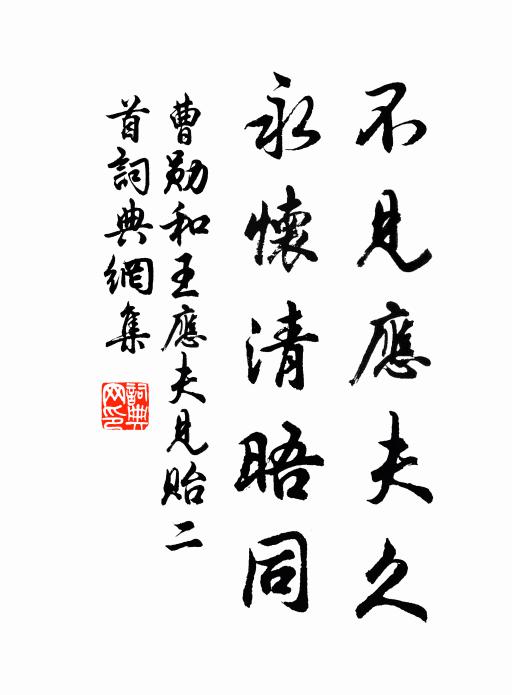 不見應夫久
永懷清晤同
曹勛和王應夫見貽二
首詞典網集
詞典网印